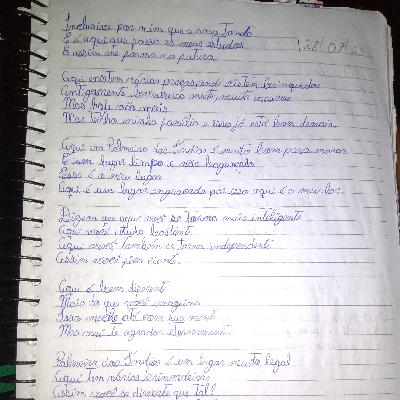 Inclusive por mim que a amo tando
E é aqui que posso os meus estudos
E assim me formo na futura
28 07 23
Aqui existem várias praças, onde existem brinquedos
Antigamente brincava muito, muito mesmo
Mas hoje não mais
Mas tenho minha família e isso já está bom demais.
Aqui na Palmeira dos Índios é muito bom para morar
É um lugar limpo e não bagunçado
Esse é o meu lugar
Aqui é um lugar engraçado por isso aqui é o meu lar.
Dizem que aqui você se torna mais inteligente
Aqui você estuda bastante
Aqui você também se torna independente
Assim você fica ciente.
Aqui é bem diferente
Mais do que você imagina
Isso mexe até com sua mente
Mas vai te agradar eternamente.
Palmeira dos Índios é um lugar muito legal
Aqui tem várias brincadeiras
Assim você se diverte que tal?